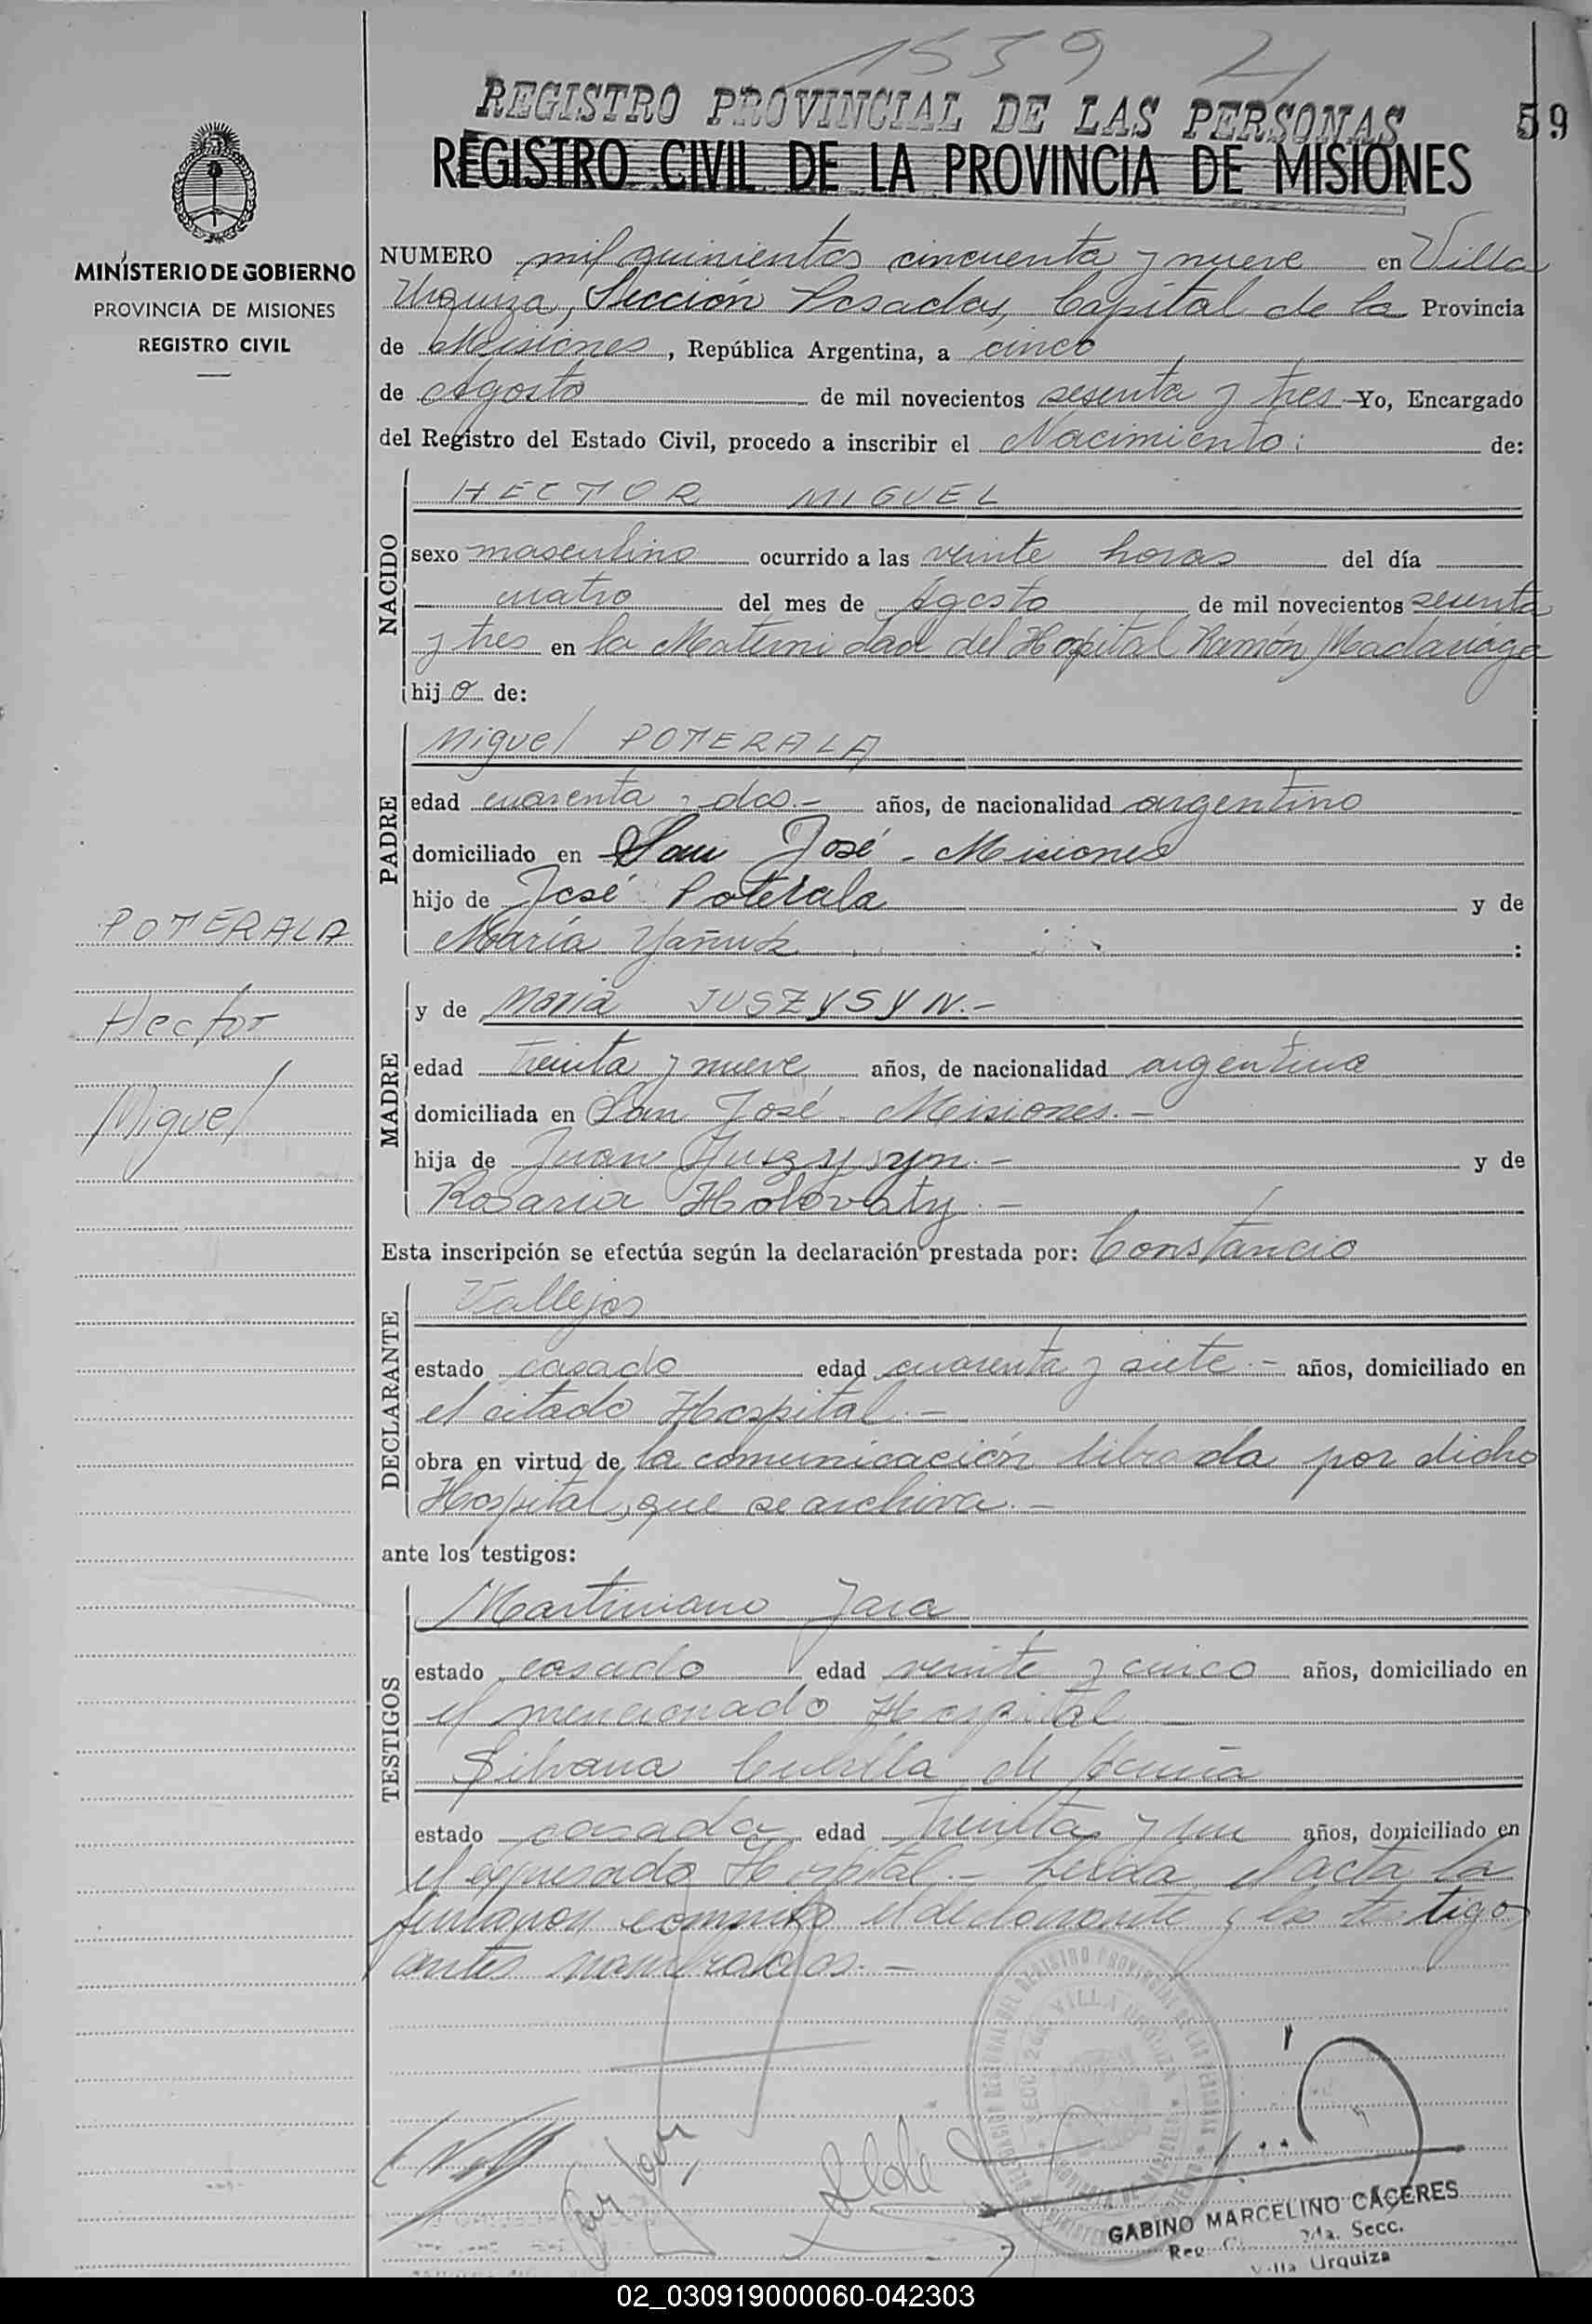 1559
REGISTRO PROVINCIAL DE LAS PERSONAS
59
REGISTRO CIVIL DE LA PROVINCIA DE MISIONES
MINISTERIO DE GOBIERNO
PROVINCIA DE MISIONES
REGISTRO CIVIL
NUMERO mil quinientos cincuenta y nueve en Villa
Urquiza, Sección Posadas, Capital de la Provincia
de Misiones, República Argentina, a cinco
de Agosto de mil novecientos sesenta y tres Yo, Encargado
del Registro del Estado Civil, procedo a inscribir el Nacimiento: de:
NACIDO
HECTOR MIGUEL
sexo masculino ocurrido a las veinte horas del día
cuatro del mes de Agosto de mil novecientos sesenta
y tres en la Maternidad del Hospital Ramón Madariaga
hijo de:
PADRE
Miguel POTERALA
edad cuarenta y dos.- años, de nacionalidad argentino
domiciliado en San José - Misiones
hijo de José Poterala y de
María Yañuk :
POTERALA
Hector
Miguel
MADRE
y de Maria JUSZYSYN.-
edad treinta y nueve años, de nacionalidad argentina
domiciliada en San José - Misiones.-
hija de Juan Juszysyn.- y de
Rosaria Holovaty.-
Esta inscripción se efectúa según la declaración prestada por: Constancio
DECLARANTE
Vallejos
estado casado edad cuarenta y siete.- años, domiciliado en
el citado Hospital.-
obra en virtud de la comunicación librada por dicho
Hospital, que se archiva.-
ante los testigos:
TESTIGOS
Martiniano Jara
estado casado edad veinte y cinco años, domiciliado en
el mencionado Hospital
Silvana de
estado casada edad treinta y un años, domiciliado en
el expresado Hospital.- Leída el acta la
firmaron conmigo el declarante y los testigos
antes nombrados.-
DELEGACION REGIONAL DEL REGISTRO PROVINCIAL DE LAS PERSONAS
SECC. 2da. VILLA URQUIZA
GABINO MARCELINO CACERES
2da. Secc.
Villa Urquiza
02_030919000060-042303